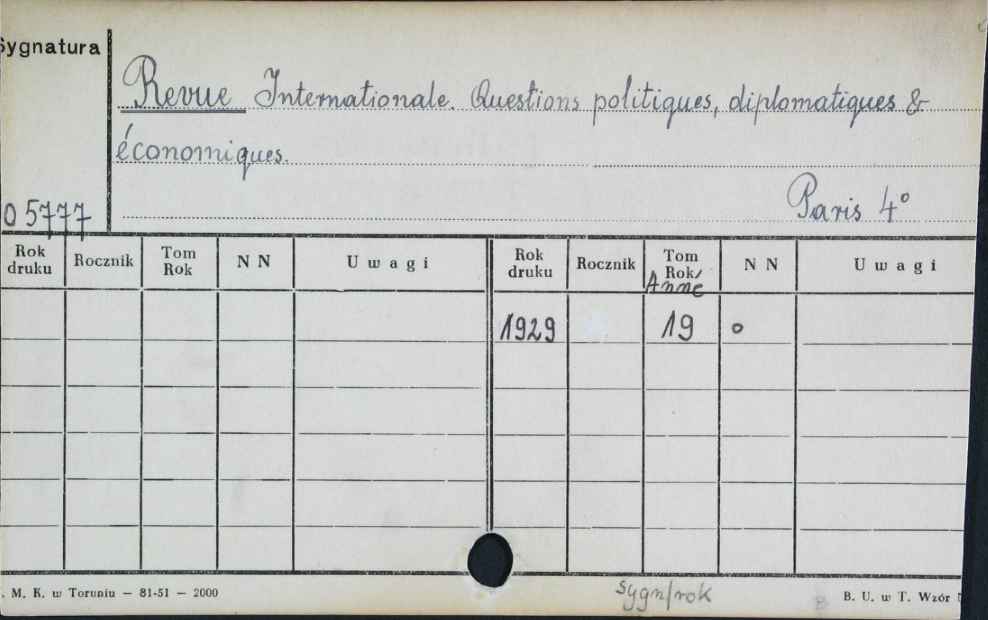 Sygnatura
Revue Internationale. Questions politiques, diplomatiques &
économiques.
05777
Paris 4°
Rok druku Rocznik Tom Rok NN Uwagi Rok druku Rocznik Tom Rok NN Uwagi
Anné
1929 19 o
. M. K. w Toruniu — 81-51 — 2000
sygn/rok
B. U. w T. Wzór